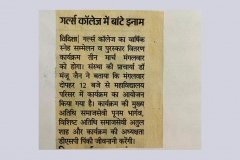 गर्ल्स कॉलेज में बांटे इनाम
विदिशा| गर्ल्स कॉलेज का वार्षिक
स्नेह सम्मेलन व पुरस्कार वितरण
कार्यक्रम तीन मार्च मंगलवार
को होगा। संस्था की प्राचार्य डॉ
मंजू जैन ने बताया कि मंगलवार
दोपहर 12 बजे से महाविद्यालय
परिसर में कार्यक्रम का आयोजन
किया गया है। कार्यक्रम की मुख्य
अतिथि समाजसेवी पूनम भार्गव,
विशिष्ट अतिथि समाजसेवी अतुल
शाह और कार्यक्रम की अध्यक्षता
डीएसपी पिंकी जीवनानी करेंगी।